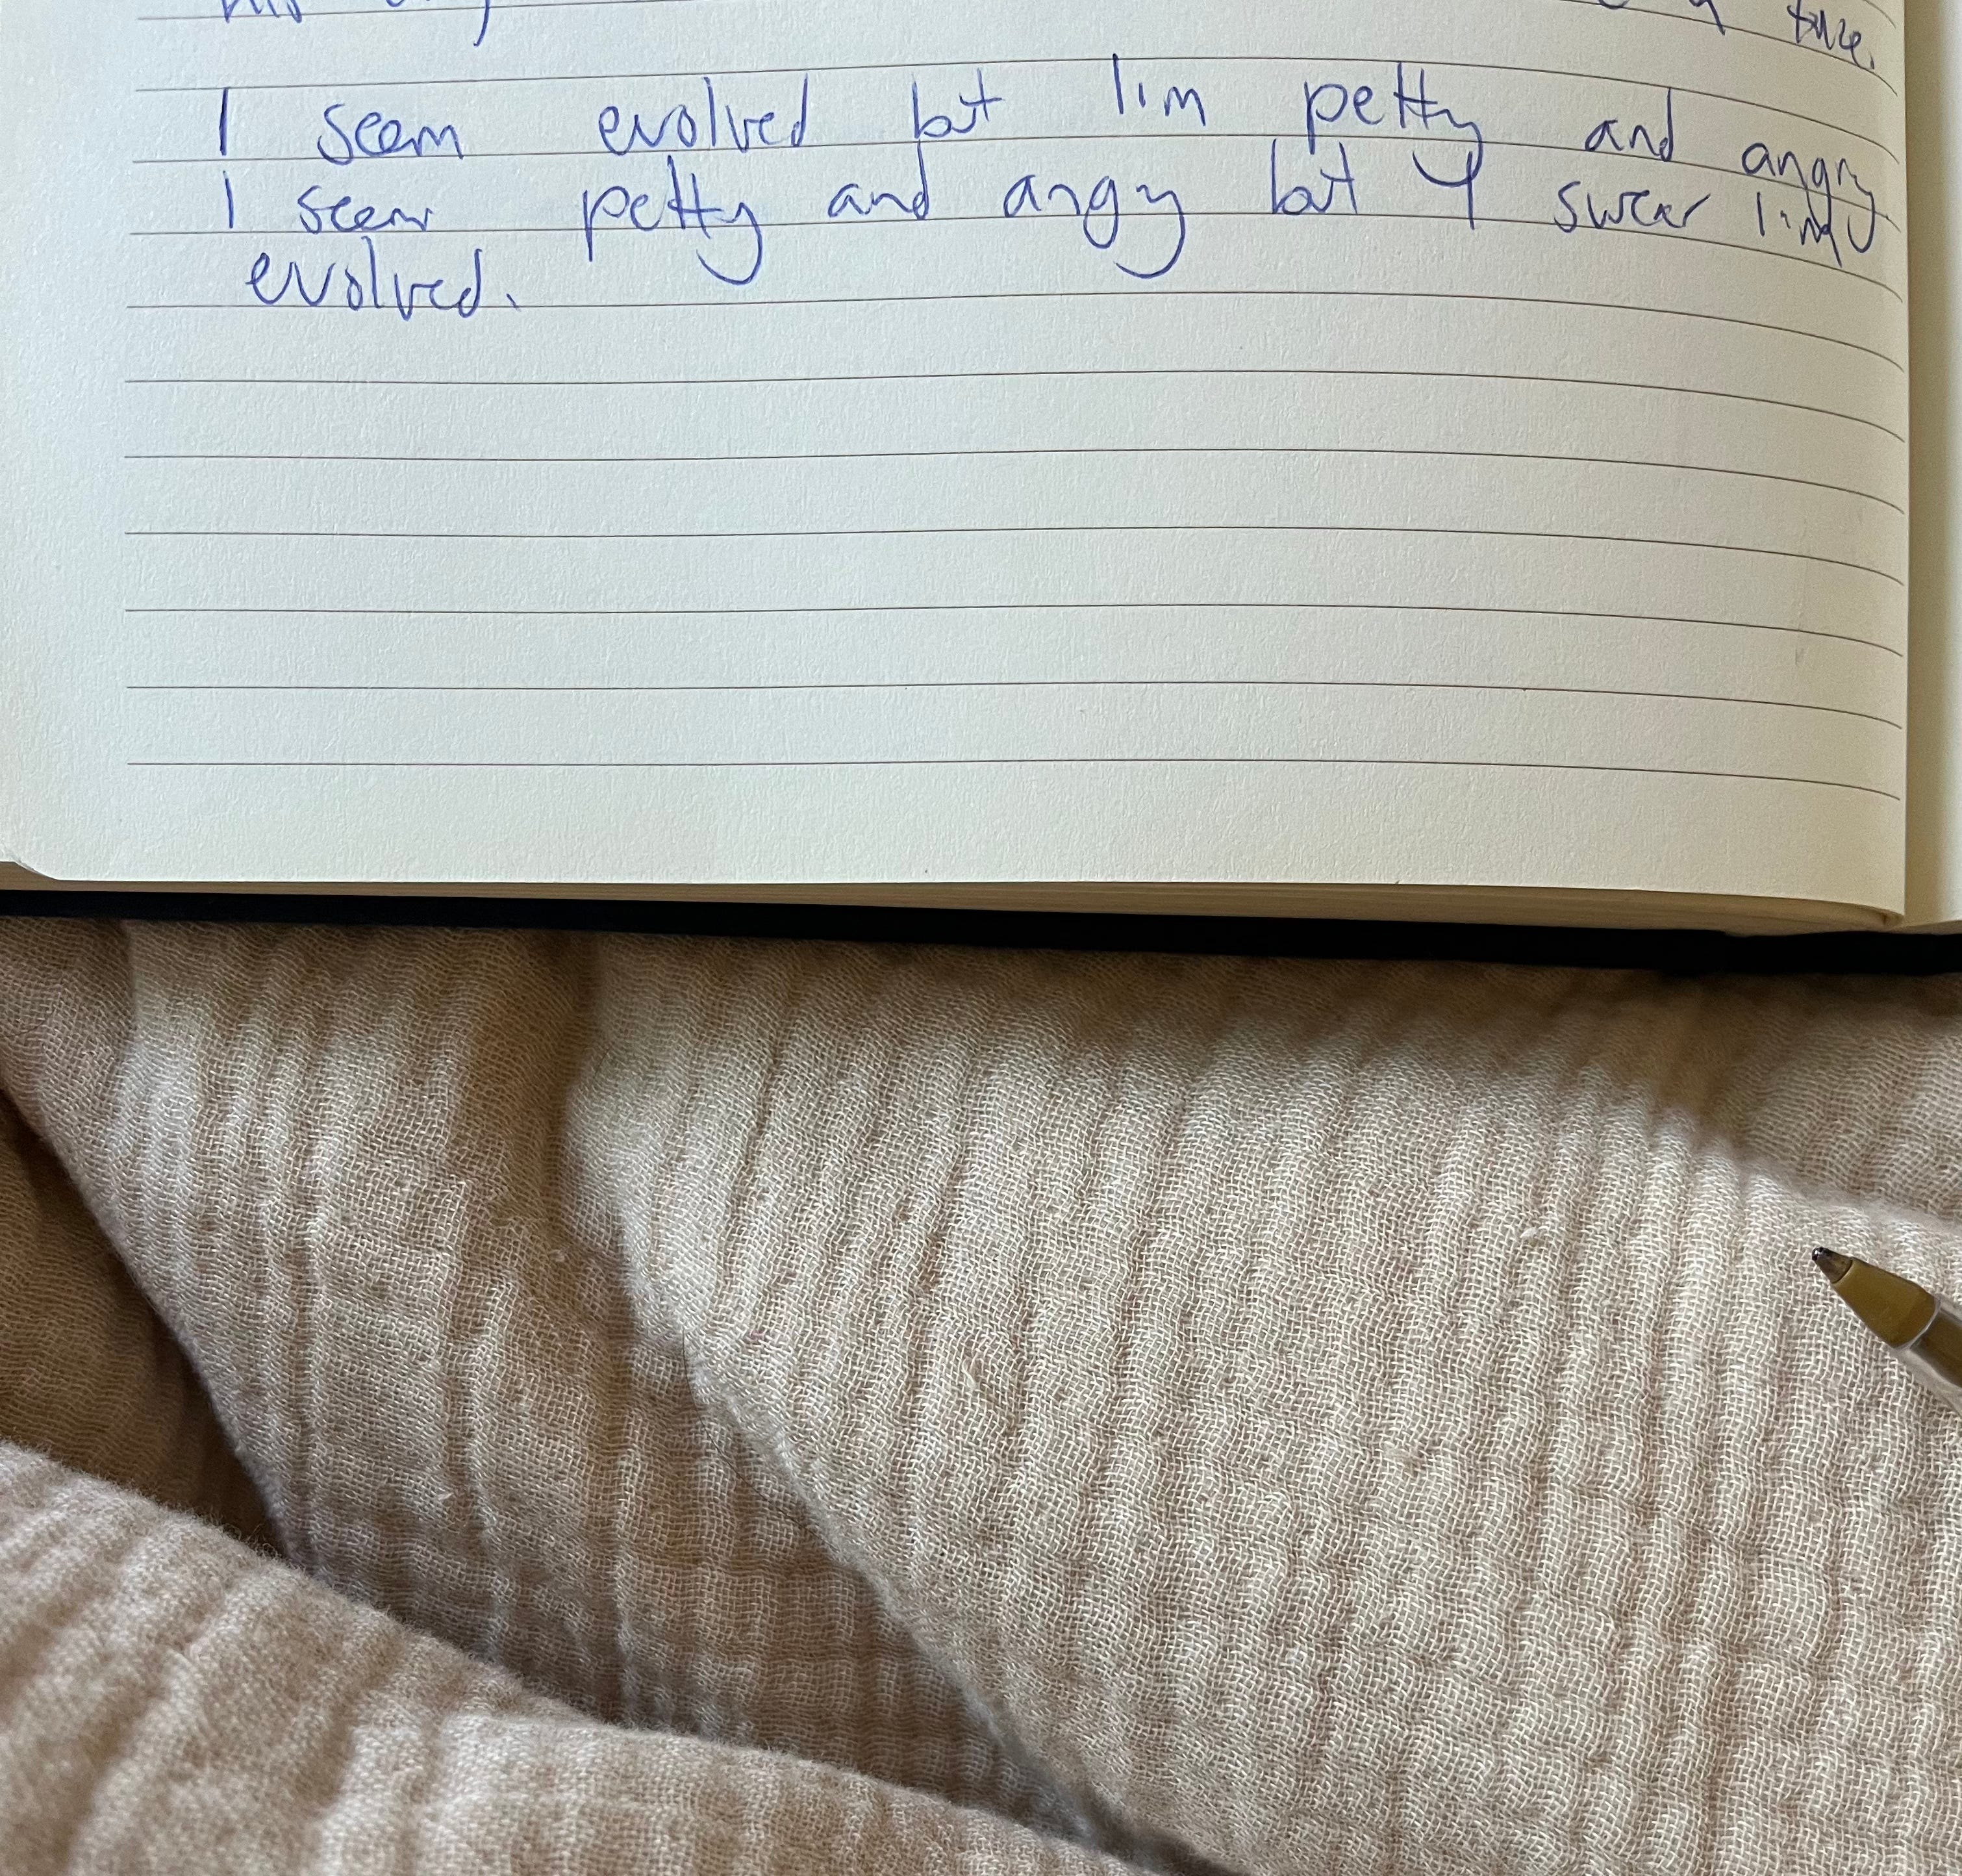 I seem evolved but I'm petty and angry
I seem petty and angy but I swear I'm
evolved.